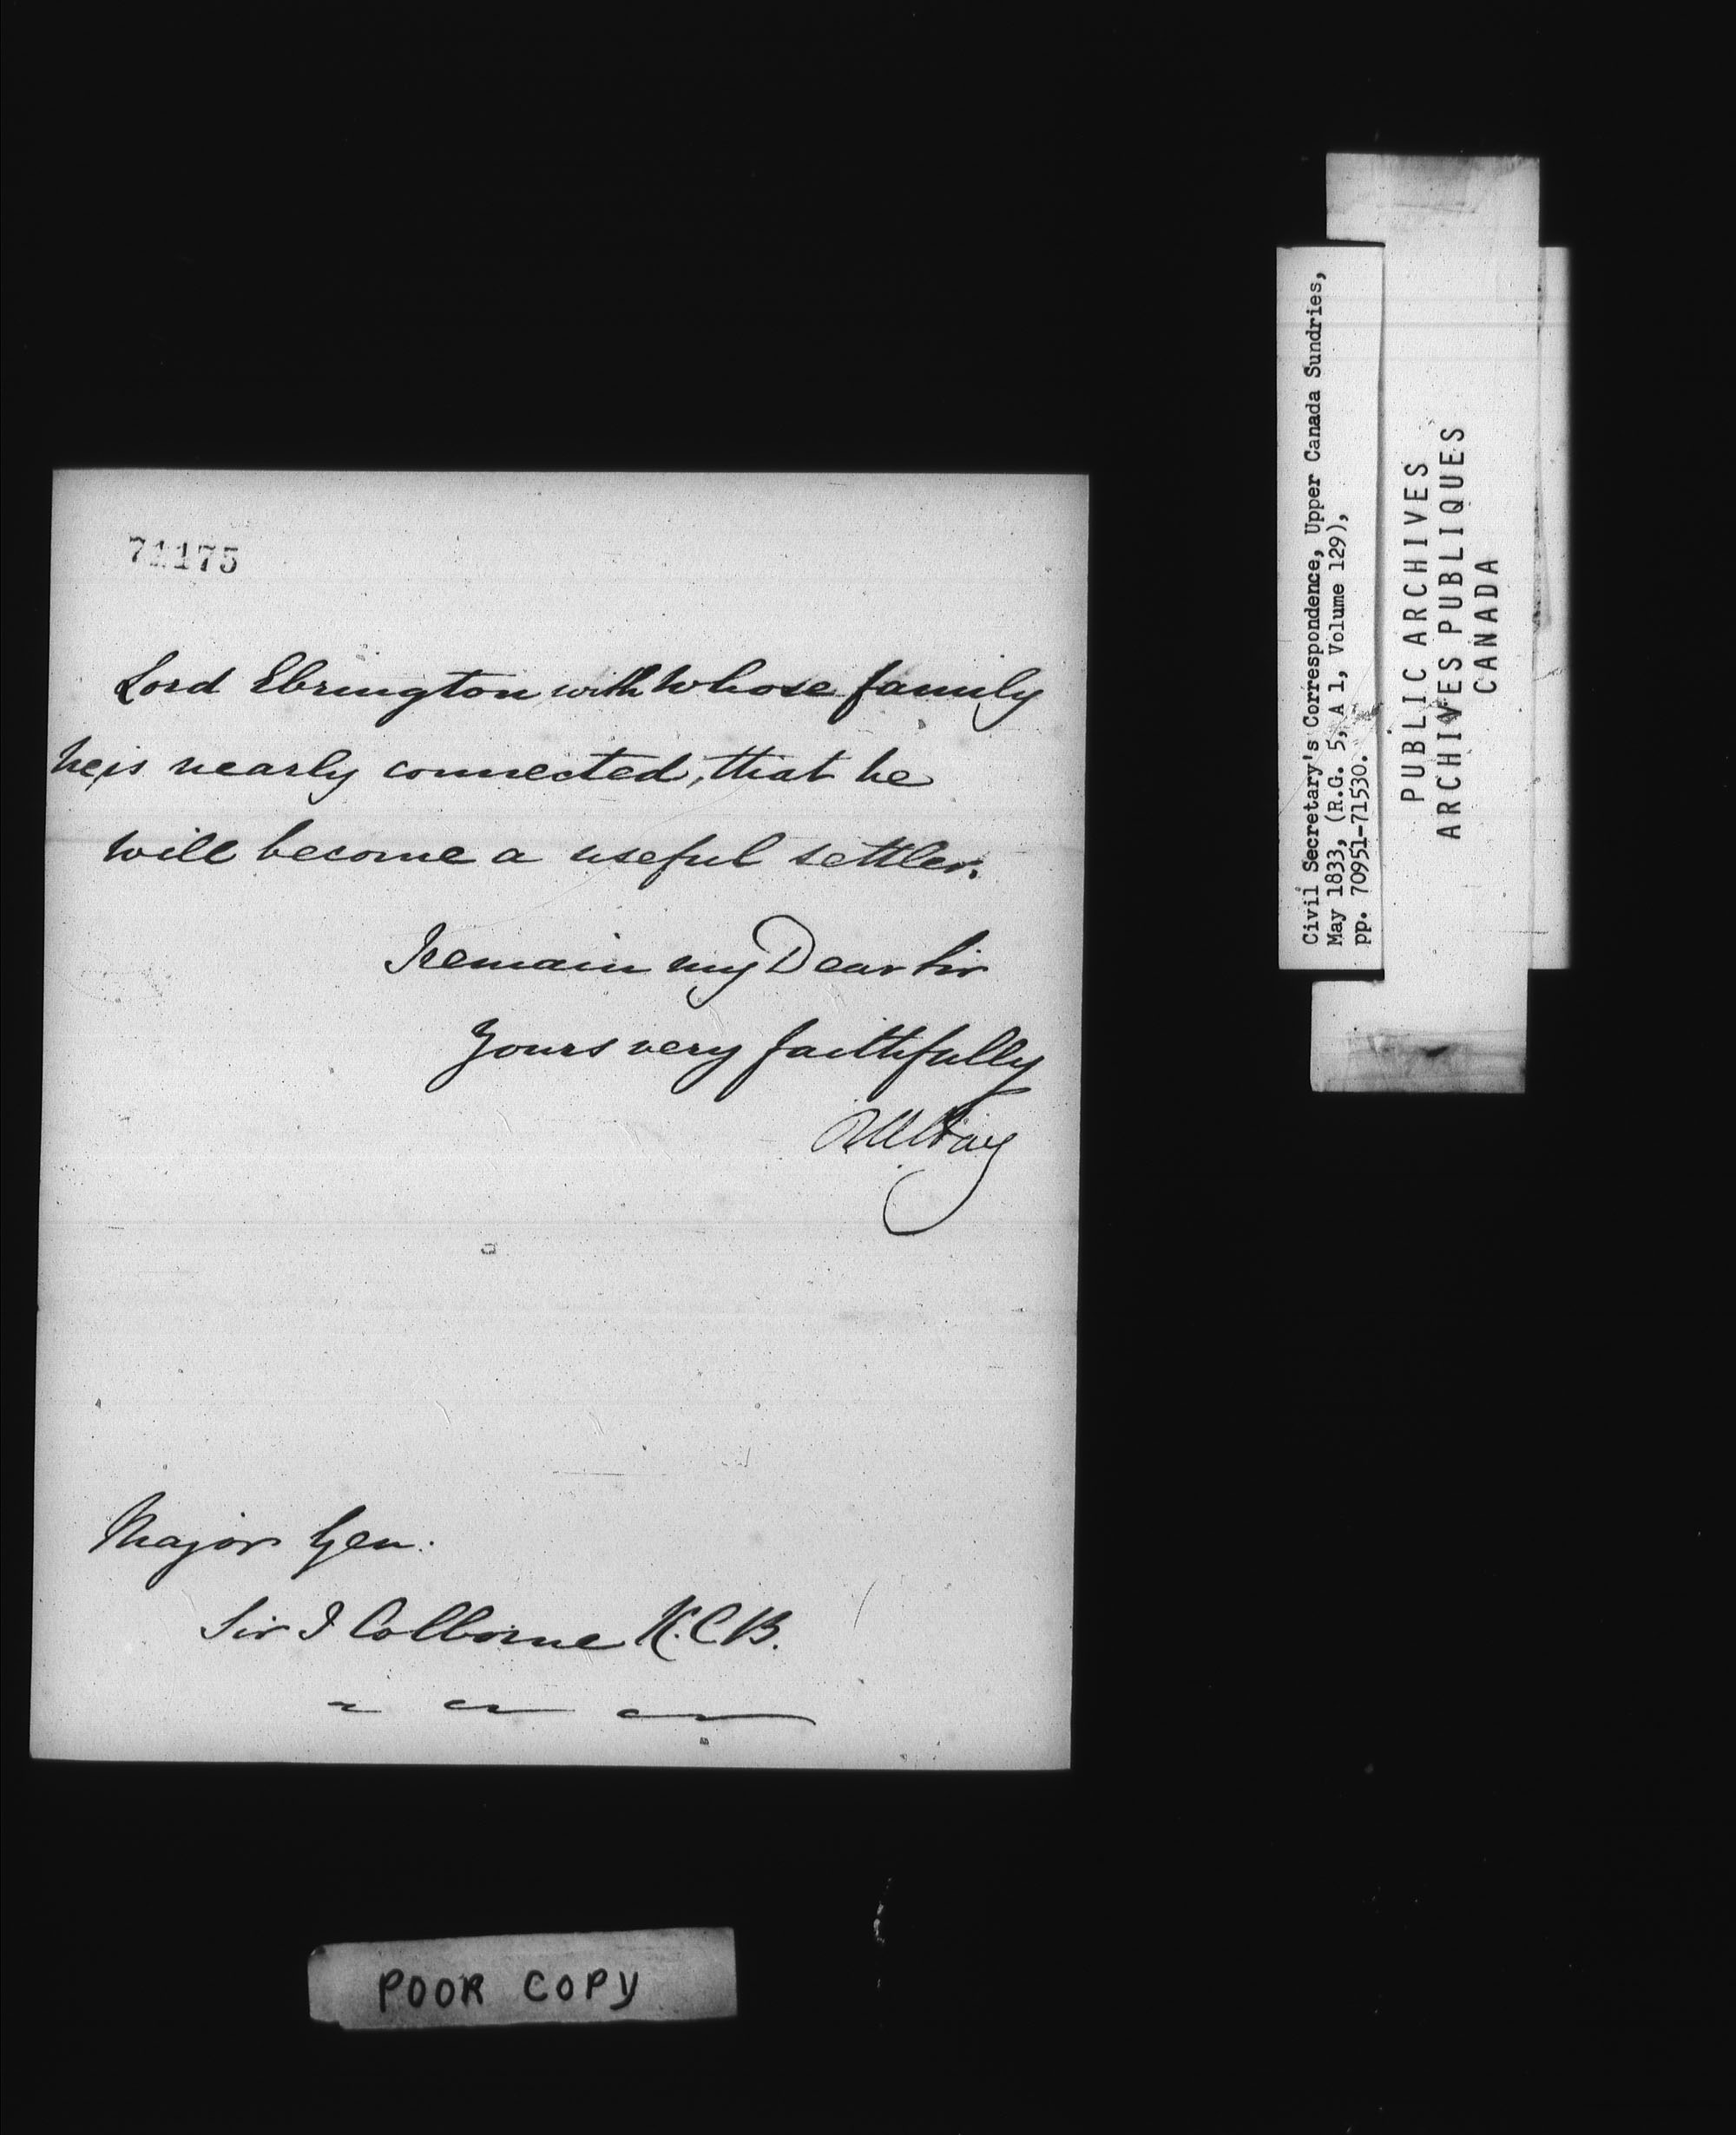 71175
Lord Ebrington with whose family
he is nearly connected, that he
will become a useful settler.
I remain my Dear Sir
Yours very faithfully
RW Hay
Major Gen.
Sir J Colborne K.C.B.
POOR COPY
Civil Secretary's Correspondence, Upper Canada Sundries,
May 1833, (R.G. 5, A 1, Volume 129),
pp. 70951-71530.
PUBLIC ARCHIVES
ARCHIVES PUBLIQUES
CANADA